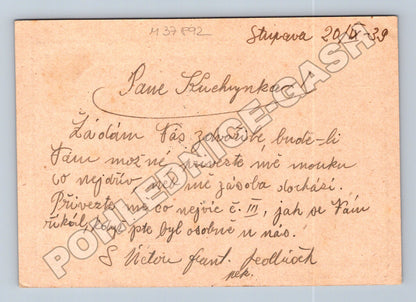 M 37 892
Stupava 20/IX-39
Pane Kuchynka
Žádám Vás zdvořile bude-li
Vám možné přivezte mě mouku
co nejdřív nek mě zásoba dochází.
Přivezte mě co nejvíc č. III, jak se Vám
říkal, když jste byl osobně u nás.
S Úctou frant. Jedlič
pek.
POHLEDNICE-CASH